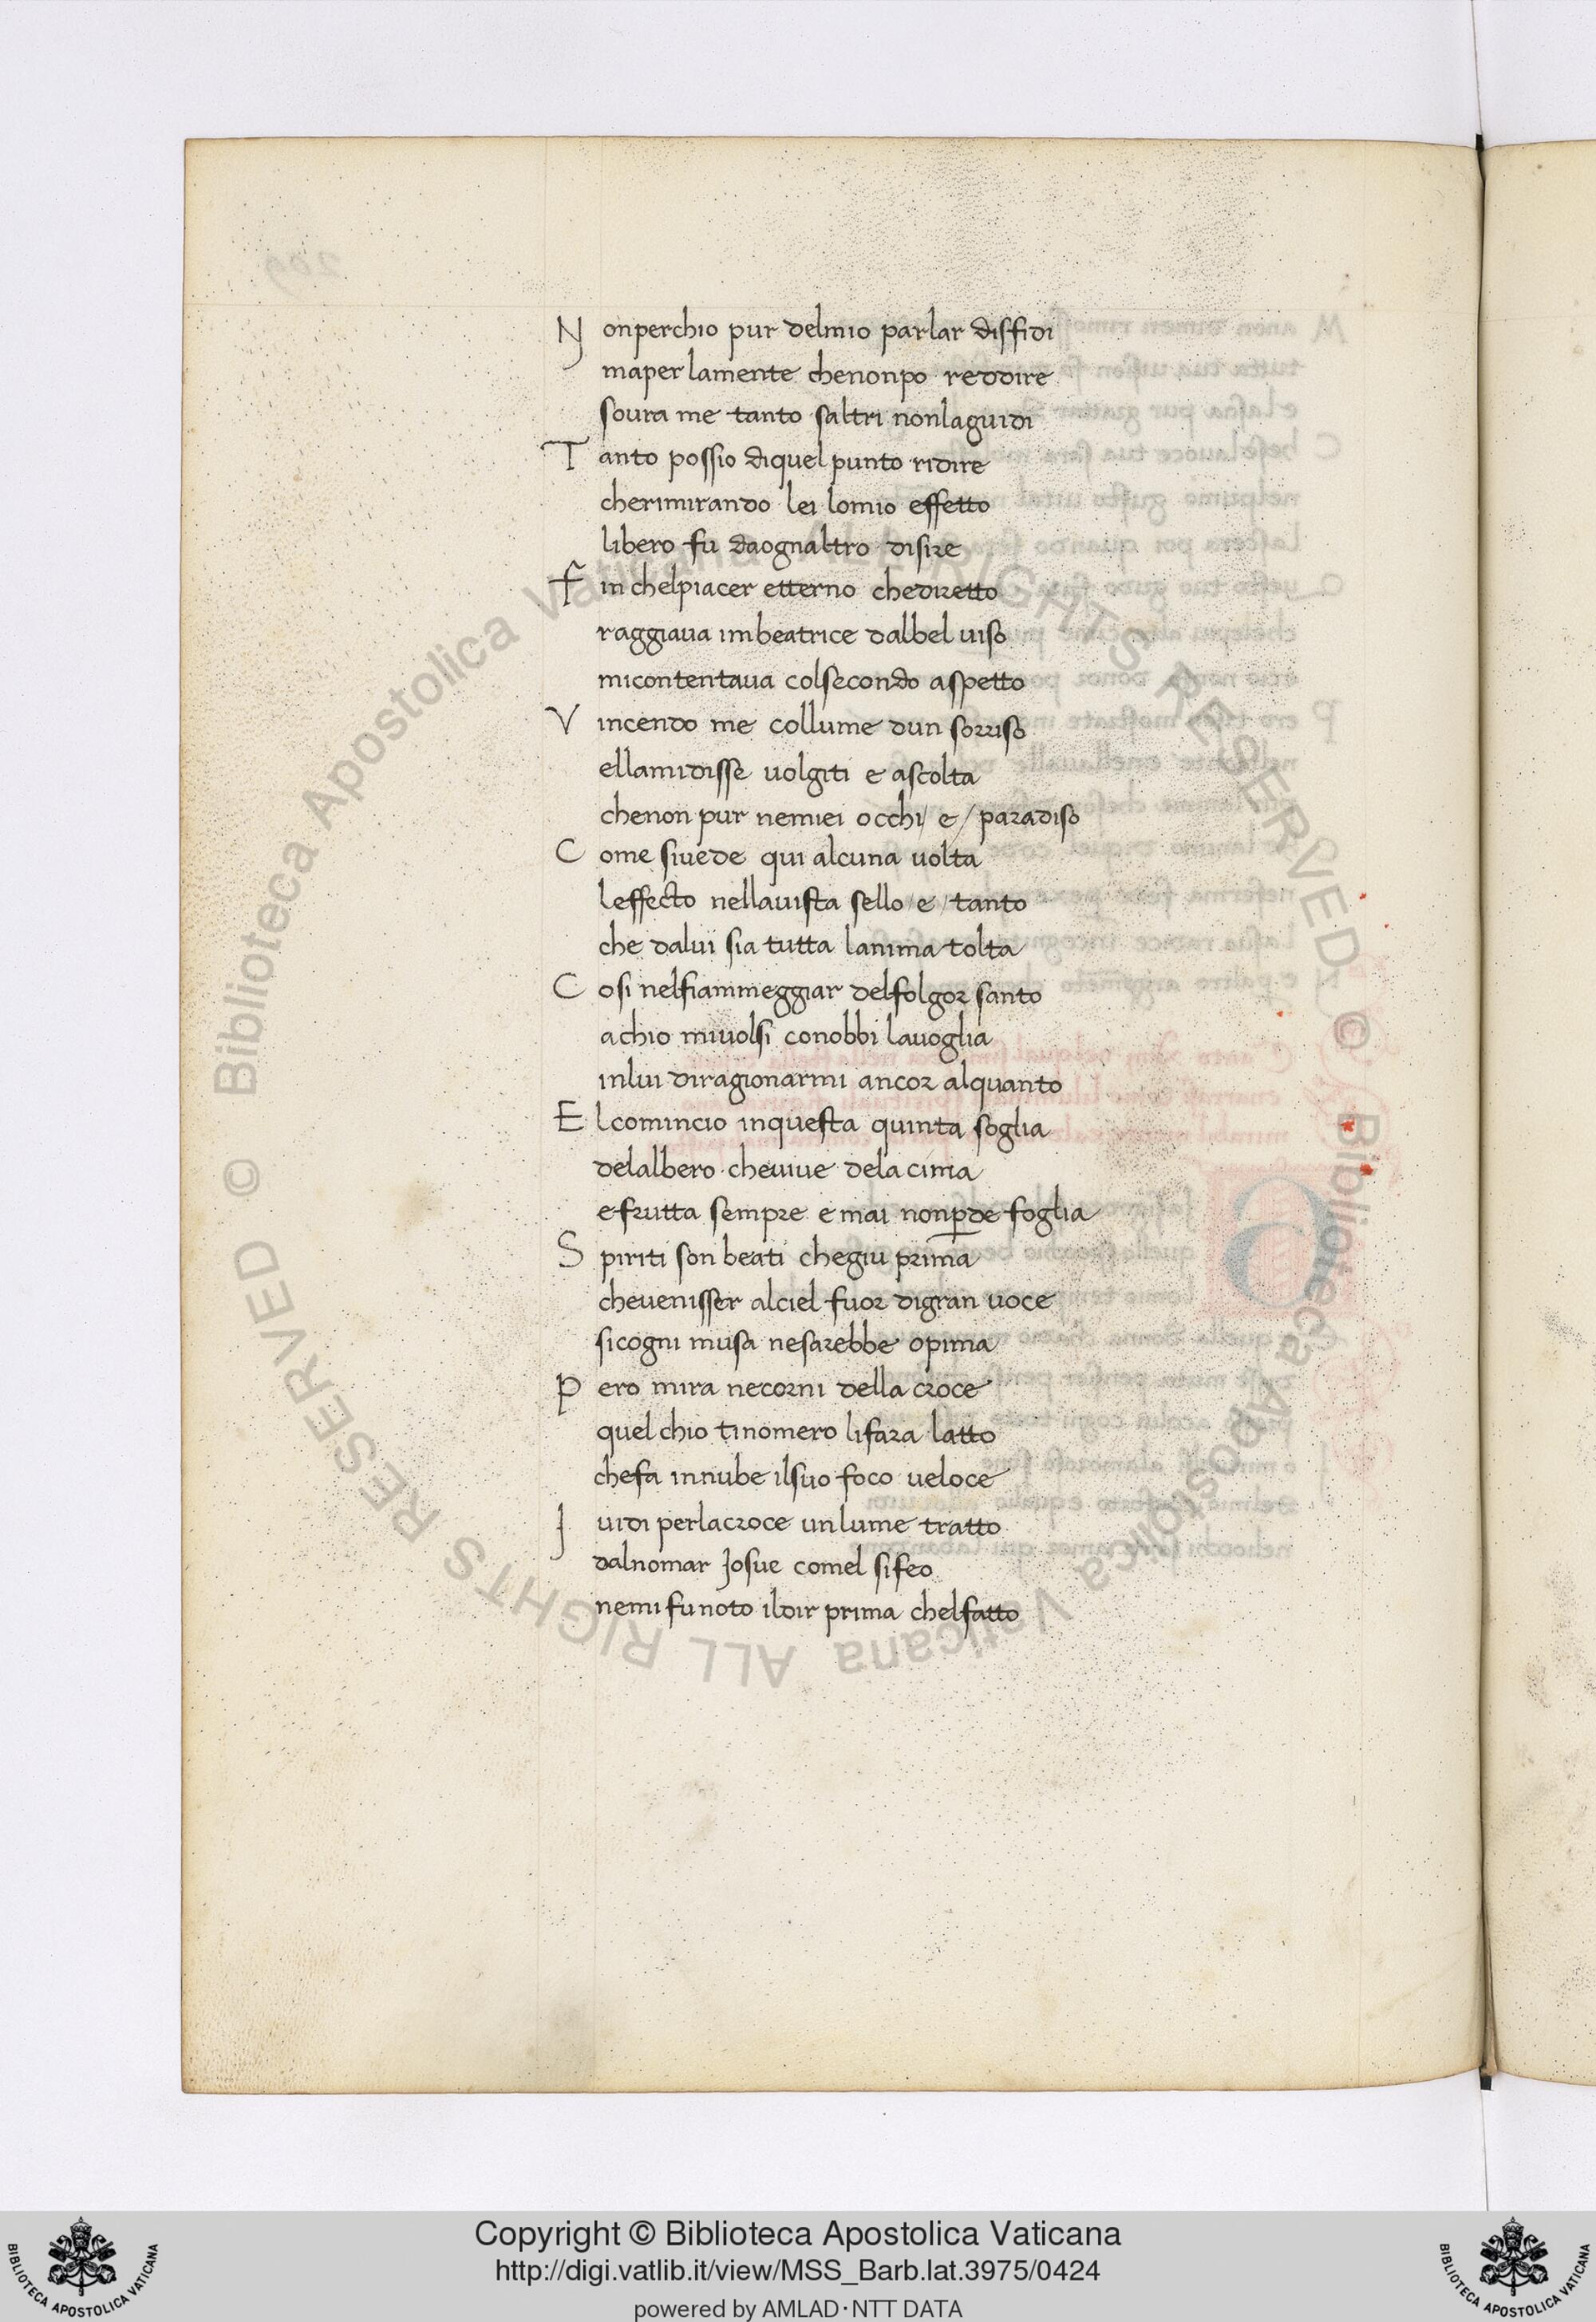 N onperchio pur delmio parlar diffidi
maperlamente chenonpo reddire
soura me tanto saltri nonlaguidi
T anto possio diquel punto ridire
cherimirando lei lomio effetto
libero fu daognaltro disire
F in chelpiacer etterno chediretto
raggiaua imbeatrice dalbel uiso
micontentaua colsecondo aspetto
V incendo me collume dun sorriso
ellamidisse uolgiti e ascolta
chenon pur nemiei occhi/ e/ paradiso
C ome siuede qui alcuna uolta
leffecto nellauista sello/e/tanto
che dalui sia tutta lanima tolta
C osi nelfiammeggiar delfolgor santo
achio miuolsi conobbi lauoglia
inlui diragionarmi ancor alquanto
E l comincio inquesta quinta soglia
delalbero cheuiue dela cima
efrutta sempre e mai nonp̱de foglia
S piriti son beati chegiu prima
cheuenisser alciel fuor digran uoce
sicogni musa nesarebbe opima
P ero mira necorni della croce
quel chio tinomero lifara latto
chefa innube ilsuo foco ueloce
J uidi perlacroce unlume tratto
dalnomar Josue comel sifeo
nemifunoto ildir prima chelfatto
© Biblioteca Apostolica Vaticana ALL RIGHTS RESERVED © Biblioteca Apostolica Vaticana ALL RIGHTS RESERVED
BIBLIOTECA APOSTOLICA VATICANA
Copyright © Biblioteca Apostolica Vaticana
http://digi.vatlib.it/view/MSS_Barb.lat.3975/0424
powered by AMLAD·NTT DATA
BIBLIOTECA APOSTOLICA VATICANA